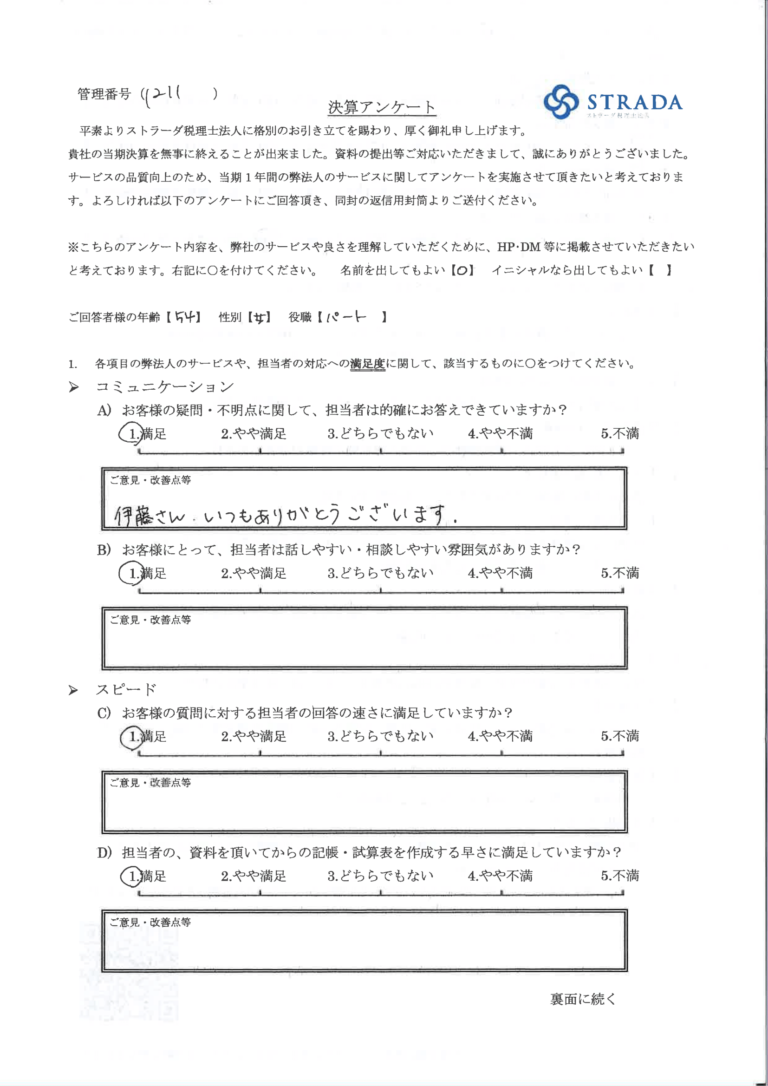 管理番号（1211　）
STRADA
ストラーダ税理士法人
決算アンケート
平素よりストラーダ税理士法人に格別のお引き立てを賜わり、厚く御礼申し上げます。
貴社の当期決算を無事に終えることが出来ました。資料の提出等ご対応いただきまして、誠にありがとうございました。
サービスの品質向上のため、当期１年間の弊法人のサービスに関してアンケートを実施させて頂きたいと考えておりま
す。よろしければ以下のアンケートにご回答頂き、同封の返信用封筒よりご送付ください。
※こちらのアンケート内容を、弊社のサービスや良さを理解していただくために、HP･DM 等に掲載させていただきたい
と考えております。右記に〇を付けてください。　名前を出してもよい【〇】　イニシャルなら出してもよい【　】
ご回答者様の年齢【54】　性別【女】　役職【パート　】
1.　各項目の弊法人のサービスや、担当者の対応への満足度に関して、該当するものに〇をつけてください。
➢　コミュニケーション
A）お客様の疑問・不明点に関して、担当者は的確にお答えできていますか？
1.満足　2.やや満足　3.どちらでもない　4.やや不満　5.不満
ご意見・改善点等
伊藤さん．いつもありがとうございます．
B）お客様にとって、担当者は話しやすい・相談しやすい雰囲気がありますか？
1.満足　2.やや満足　3.どちらでもない　4.やや不満　5.不満
ご意見・改善点等
➢　スピード
C）お客様の質問に対する担当者の回答の速さに満足していますか？
1.満足　2.やや満足　3.どちらでもない　4.やや不満　5.不満
ご意見・改善点等
D）担当者の、資料を頂いてからの記帳・試算表を作成する早さに満足していますか？
1.満足　2.やや満足　3.どちらでもない　4.やや不満　5.不満
ご意見・改善点等
裏面に続く